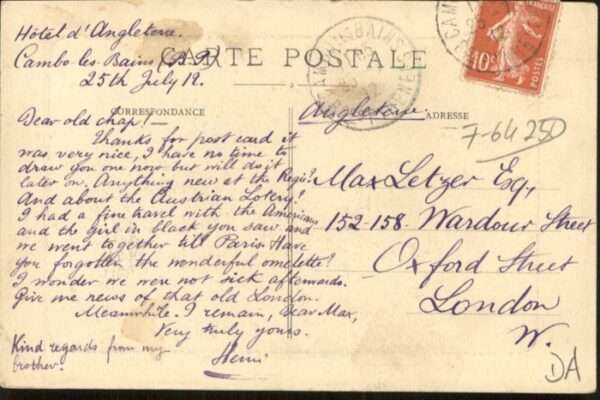 Hôtel d'Angleterre.
Cambo les Bains (B.P.)
25th July 12.
CARTE POSTALE
CORRESPONDANCE
ADRESSE
Dear old chap!
Thanks for post card it
was very nice, I have no time to
draw you one now but will do it
later on. Anything new at the Regis?
And about the Austrian Lotery?
I had a fine travel with the Americans
and the girl in black you saw and
we went together till Paris. Have
you forgotten the wonderful omelette!
I wonder we were not sick afterwards.
Give me news of that old London.
Meanwhile I remain, dear Max,
Very truly yours.
Henri
Kind regards from my
brother.
Angleterre
Max Letzer Esq.,
152-158. Wardour Street
Oxford Street
London
W.
7-64 250
DA
10c
POSTES